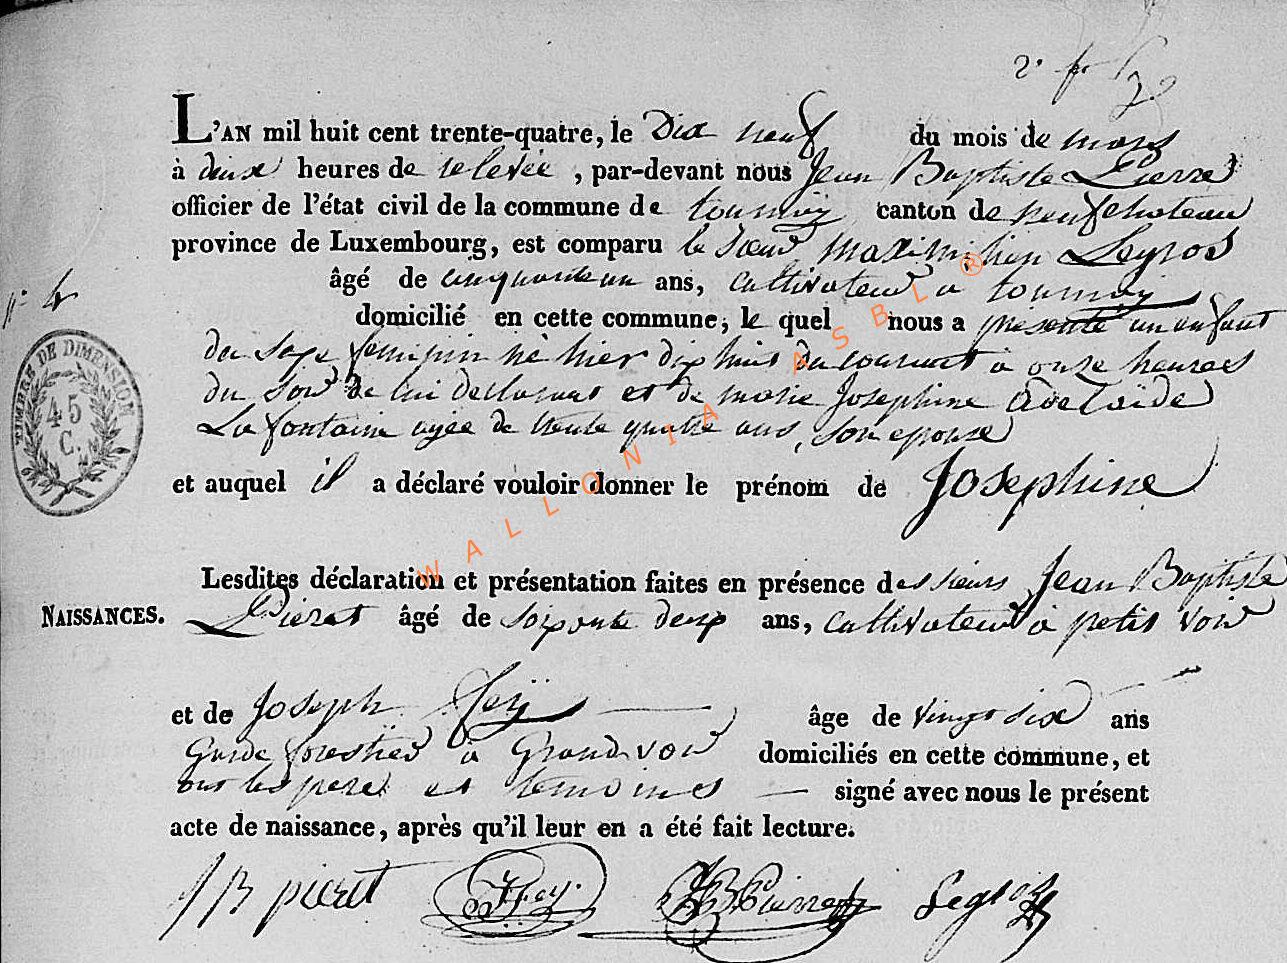 2.
L'AN mil huit cent trente-quatre, le Dix neuf du mois de mars
à deux heures de relevée, par-devant nous Jean Baptiste Pierre
officier de l'état civil de la commune de tournay canton de neufchateau
province de Luxembourg, est comparu le sieur Maximilien Legros
âgé de cinquante un ans, cultivateur a tournay
domicilié en cette commune, le quel nous a présenté un enfant
du sexe feminin né hier dix huit du courant à onze heures
du soir de lui declarant et de marie Josephine Adelaïde
Lafontaine agée de trente quatre ans, son epouse
et auquel il a déclaré vouloir donner le prénom de Josephine
TIMBRE DE DIMENSION
45
C.
WALLONIA ASBL ®
Lesdites déclaration et présentation faites en présence des sieurs Jean Baptiste
NAISSANCES. Pieret âgé de soixante deux ans, cultivateur à petit voir
et de Joseph Feÿ âge de vingt six ans
Garde forestier à Grandvoir domiciliés en cette commune, et
ont les pere et temoins signé avec nous le présent
acte de naissance, après qu'il leur en a été fait lecture.
J B pieret J Fey. JB Pierre Legros